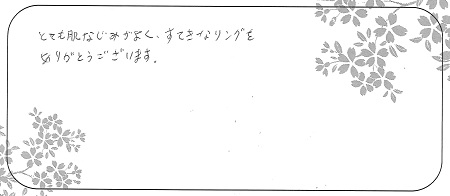 とても肌なじみがよく、すてきなリングを
ありがとうございます。